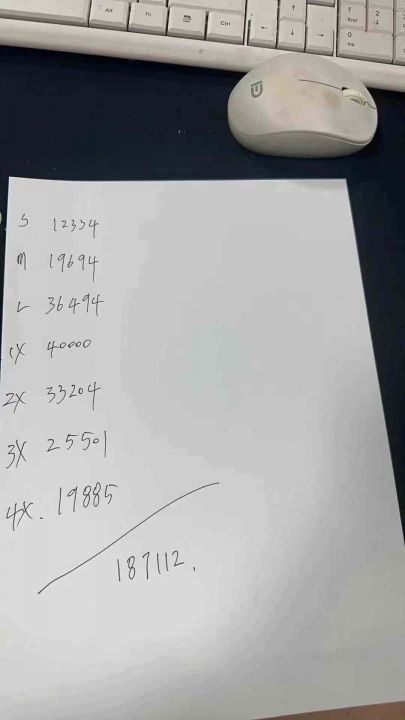 Alt Fn Ctrl
1 2
End
0
Ins
S 12334
M 19694
L 36494
1X 40000
2X 33204
3X 25501
4X. 19885
187112.